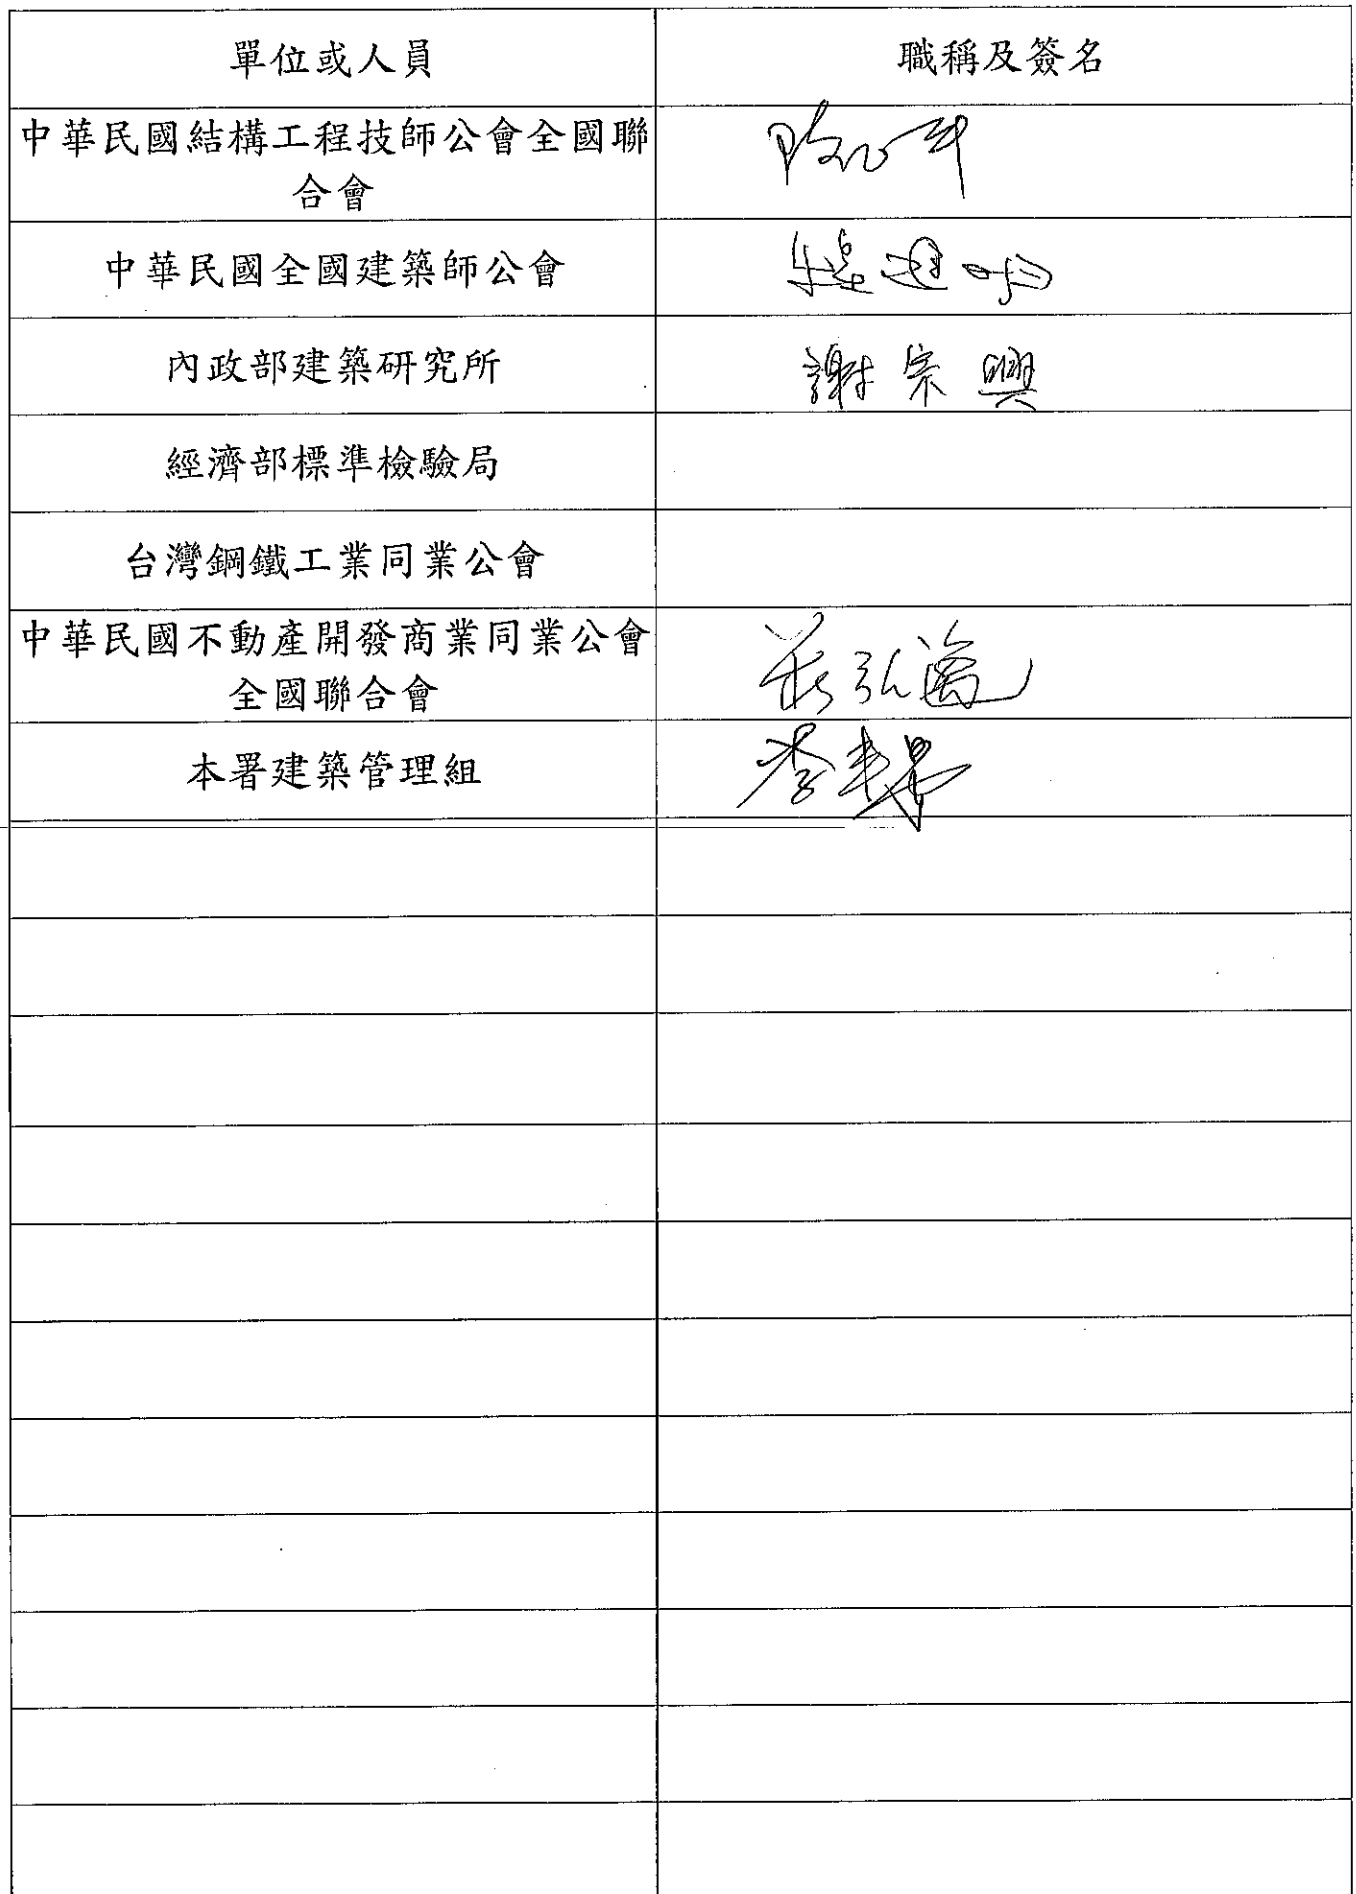 單位或人員
職稱及簽名
中華民國結構工程技師公會全國聯
合會
中華民國全國建築師公會
內政部建築研究所
謝宗興
經濟部標準檢驗局
台灣鋼鐵工業同業公會
中華民國不動產開發商業同業公會
全國聯合會
本署建築管理組